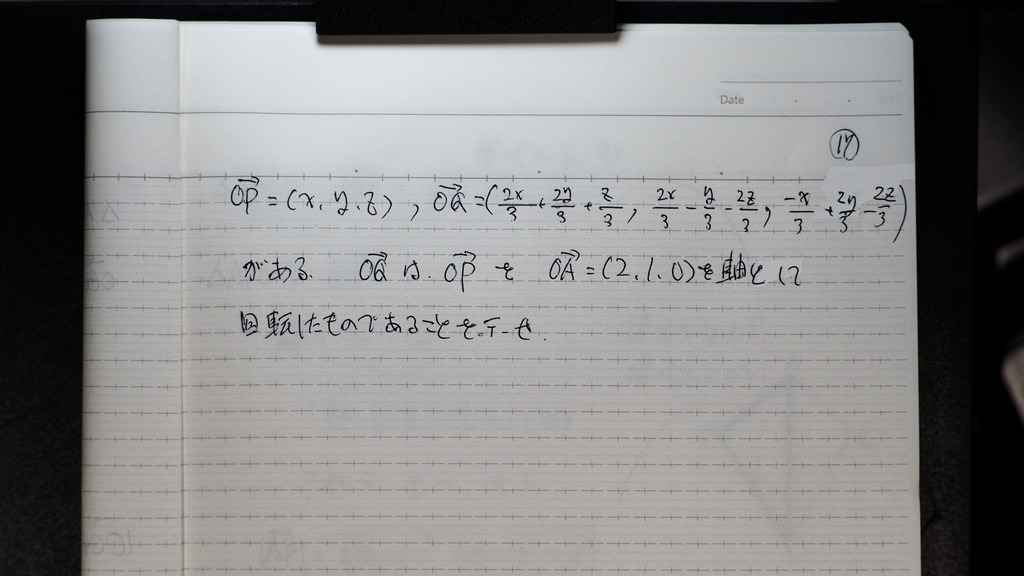 Date
⑰
$\overrightarrow{OP}=(x, y, z)$ , $\overrightarrow{OQ}=(\frac{2x}{3}+\frac{2y}{3}+\frac{z}{3}, \frac{2x}{3}-\frac{y}{3}-\frac{2z}{3}, \frac{-x}{3}+\frac{2y}{3}-\frac{2z}{3})$
がある. $\overrightarrow{OQ}$ は $\overrightarrow{OP}$ を $\overrightarrow{OA}=(2, 1, 0)$ を軸として
回転したものであることを示せ.